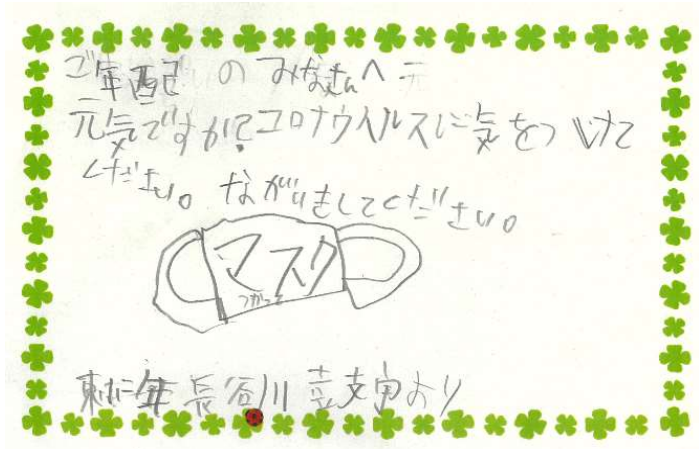 ご年配のみなさんへ
元気ですか?コロナウイルスに気をつけて
ください。ながいきしてください。
マスク
つかって
年 長谷川 より